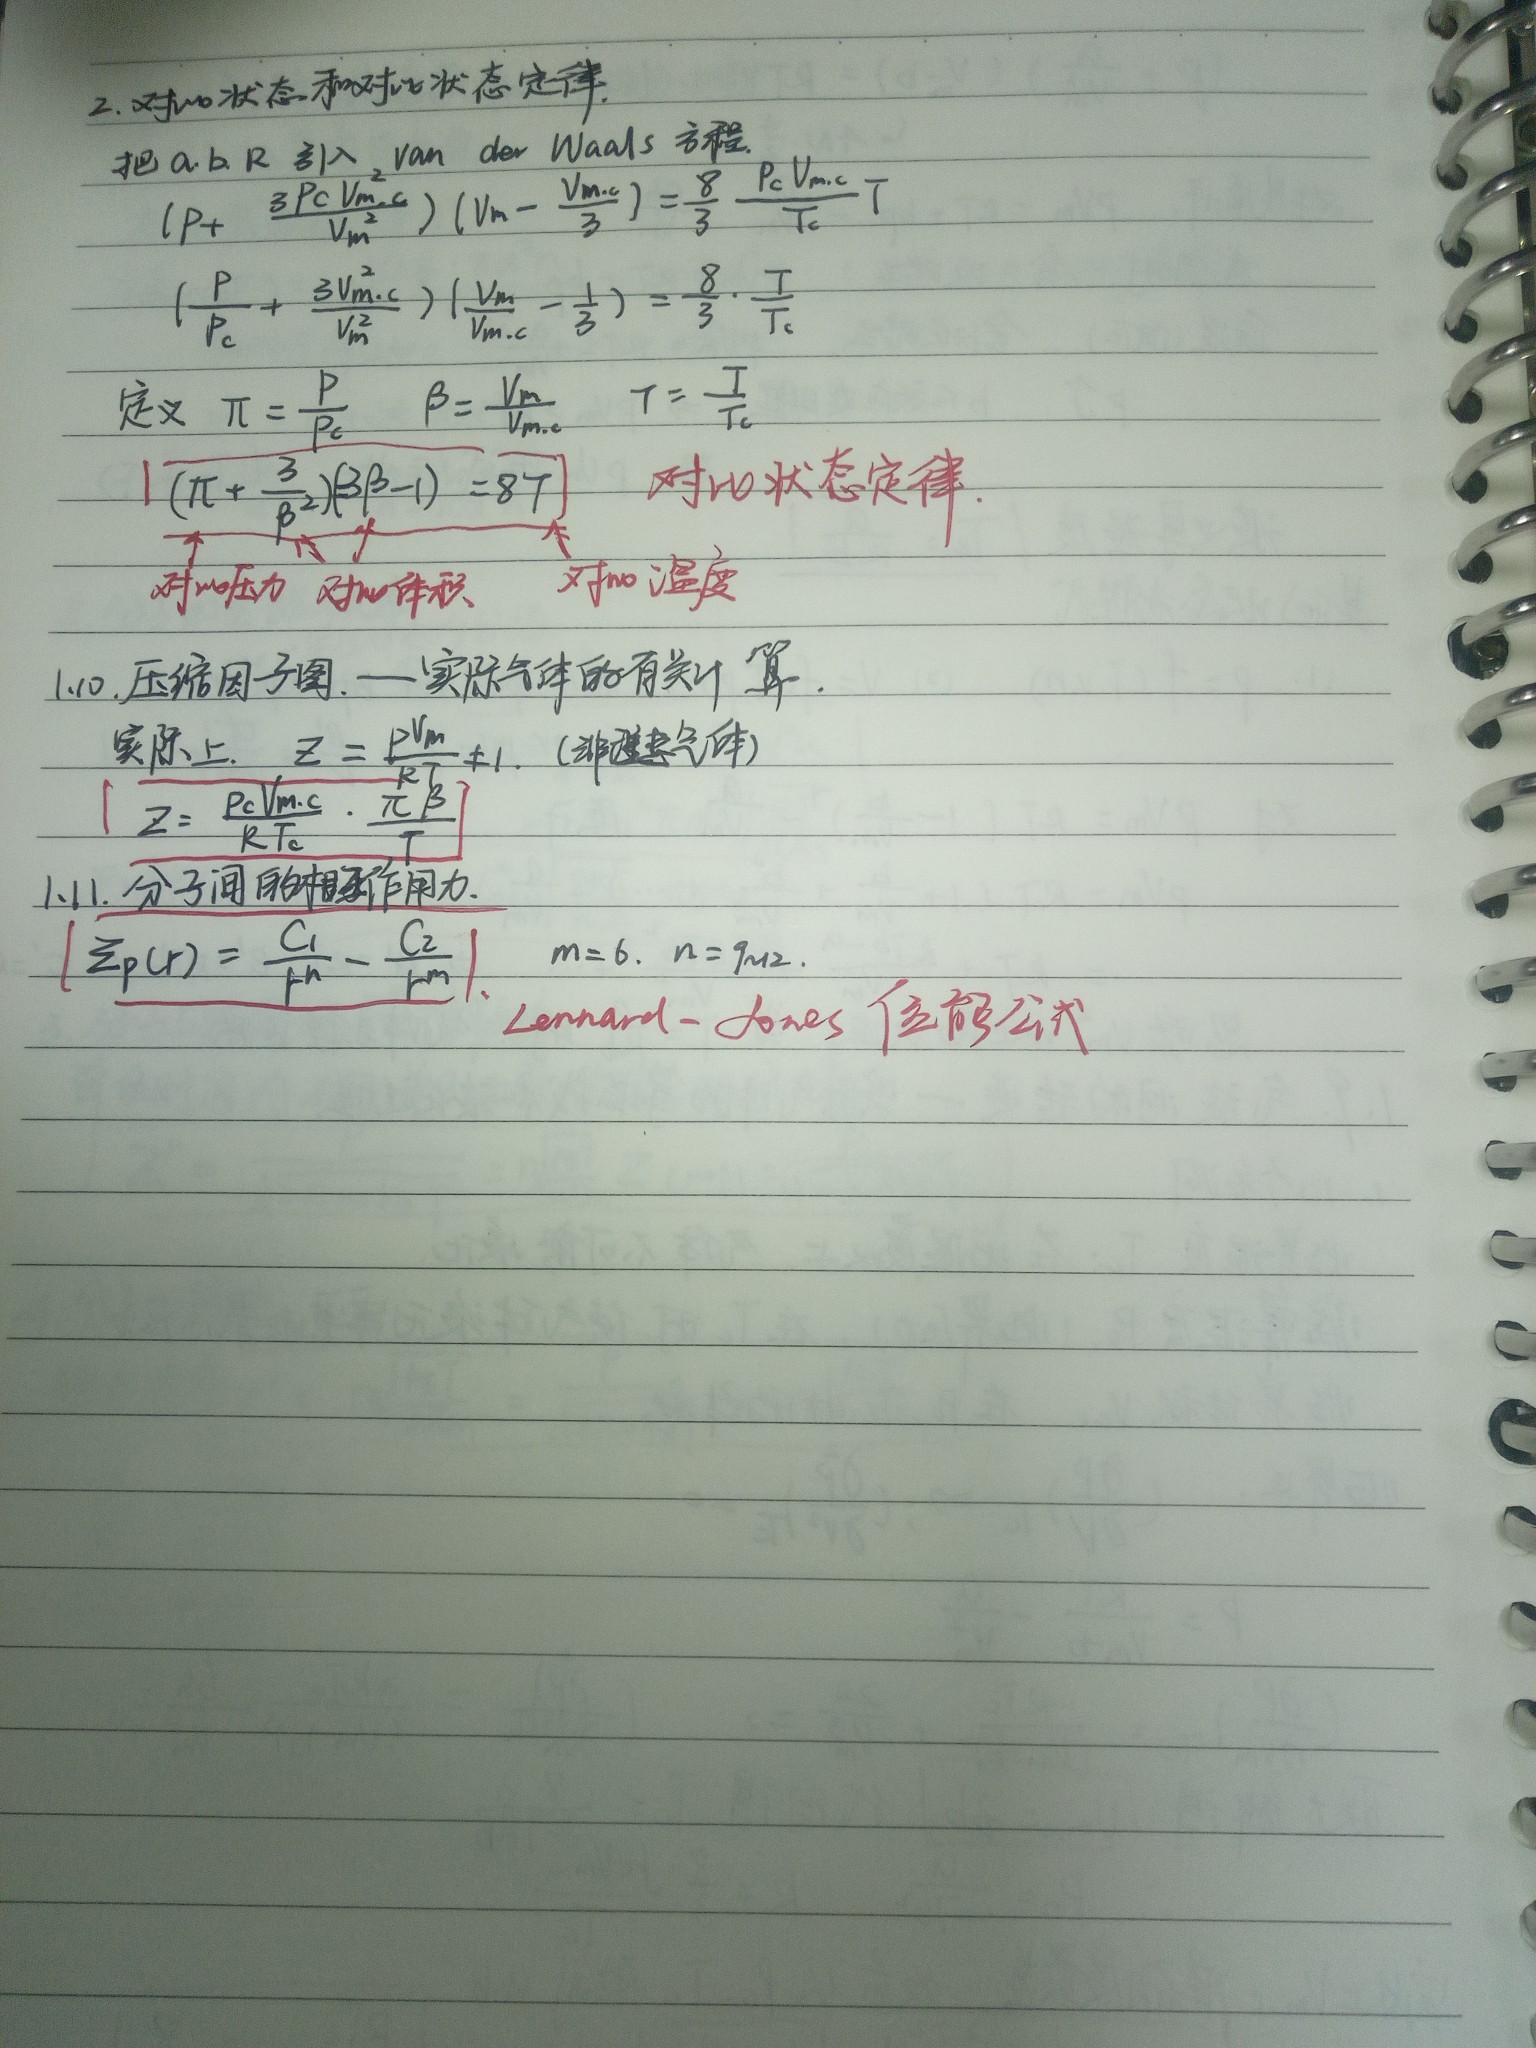 2. 对比状态和对比状态定律.
把 a.b.R 引入 van der Waals 方程.
(P + 3PcVm.c²/Vm²)(Vm - Vm.c/3) = 8/3 PcVm.c/Tc T
(P/Pc + 3Vm.c²/Vm²)(Vm/Vm.c - 1/3) = 8/3 · T/Tc
定义 π = P/Pc β = Vm/Vm.c τ = T/Tc
(π + 3/β²)(3β-1) = 8τ 对比状态定律.
对比压力 对比体积 对比温度
1.10. 压缩因子图. — 实际气体的有关计算.
实际上. Z = PVm/RT ≠ 1. (非理想气体)
Z = PcVm.c/RTc · πβ/τ
1.11. 分子间的相互作用力.
Σp(r) = C1/rⁿ - C2/rᵐ m=6. n=9~12.
Lennard-Jones 位能公式